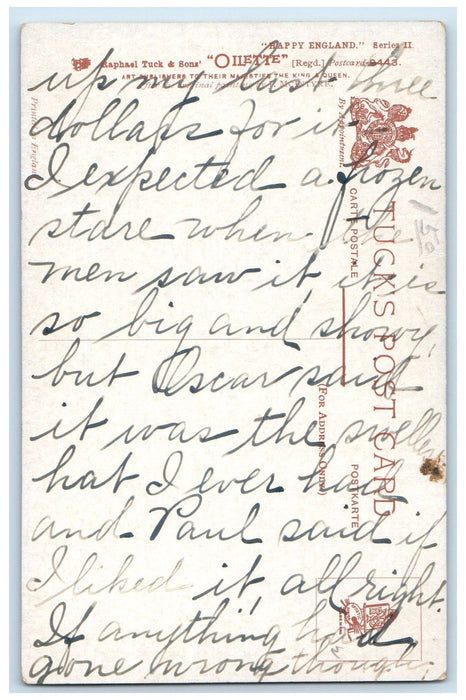 "HAPPY ENGLAND." Series II
Raphael Tuck & Sons' "OILETTE" [Regd.] Postcard 9443.
ART PUBLISHERS TO THEIR MAJESTIES THE KING & QUEEN.
up my three
dollars for it
I expected a frozen
stare when the
men saw it, it is
so big and showy,
but Oscar said
it was the swellest
hat I ever had
and Paul said if
I liked it, all right.
If anything had
gone wrong though,
By Appointment
CARTE POSTALE
TUCK'S POST CARD
(FOR ADDRESS ONLY)
POSTKARTE